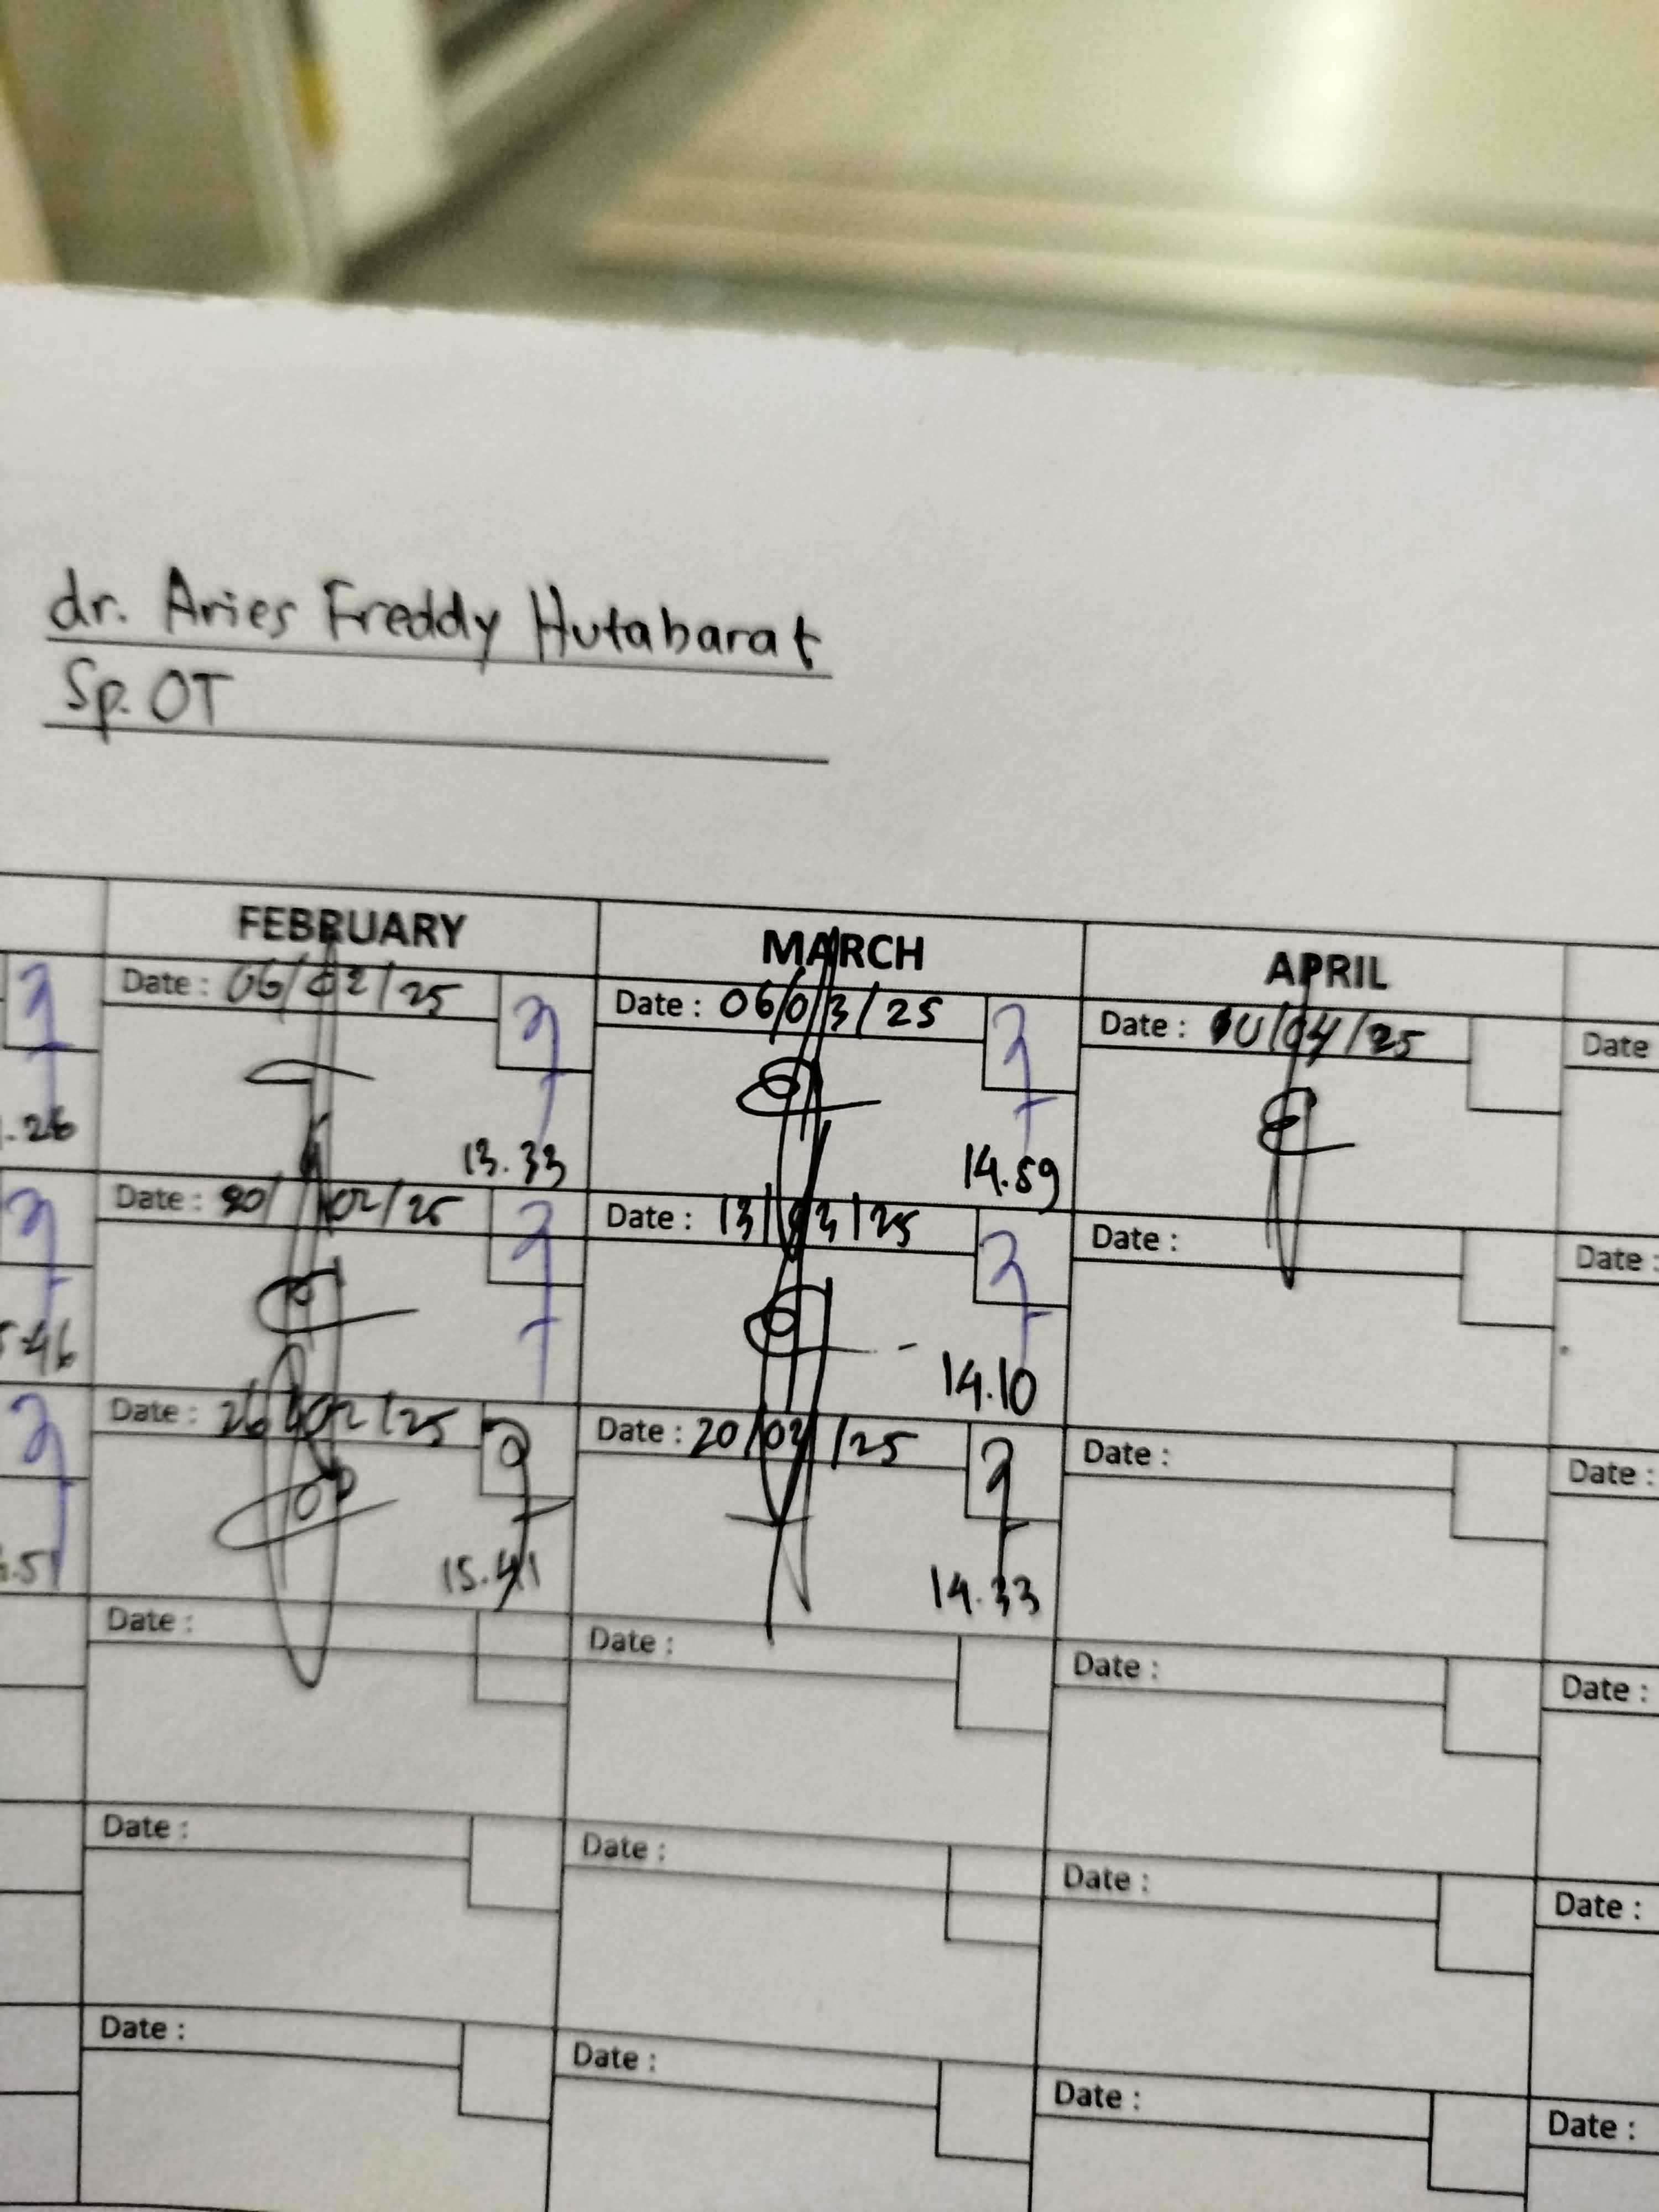 dr. Aries Freddy Hutabarat
Sp. OT
FEBRUARY MARCH APRIL
Date : 06/02/25 Date : 06/03/25 Date : 10/04/25 Date
.26 13.33 14.59
Date : 20/02/25 Date : 13/03/25 Date : Date :
.46 14.10
Date : 26/02/25 Date : 20/03/25 Date : Date :
.51 15.41 14.33
Date : Date : Date : Date :
Date : Date : Date : Date :
Date : Date : Date : Date :